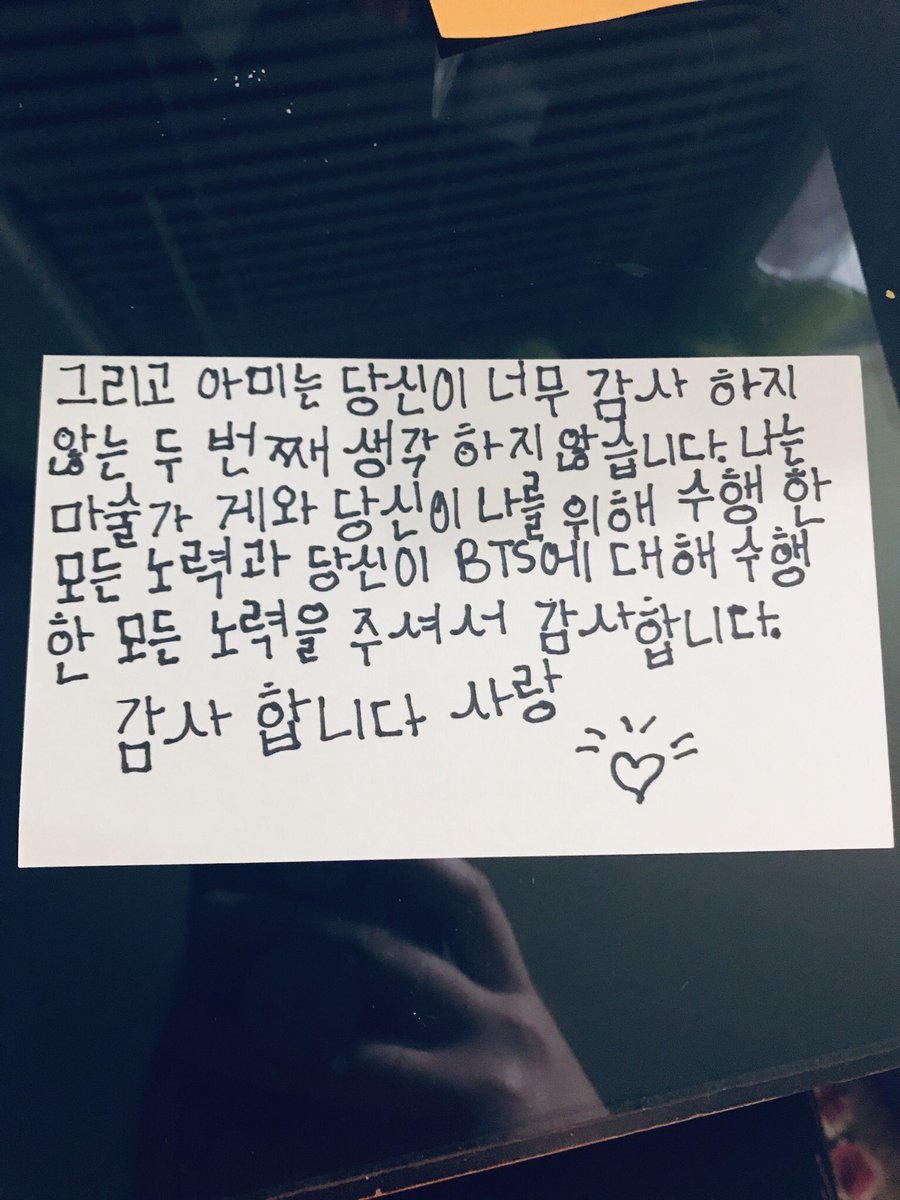 그리고 아미는 당신이 너무 감사 하지
않는 두 번 째 생각 하지 않습니다. 나는
마술가 게와 당신이 나를 위해 수행 한
모든 노력과 당신이 BTS에 대해 수행
한 모든 노력을 주셔서 감사합니다.
감사 합니다 사랑